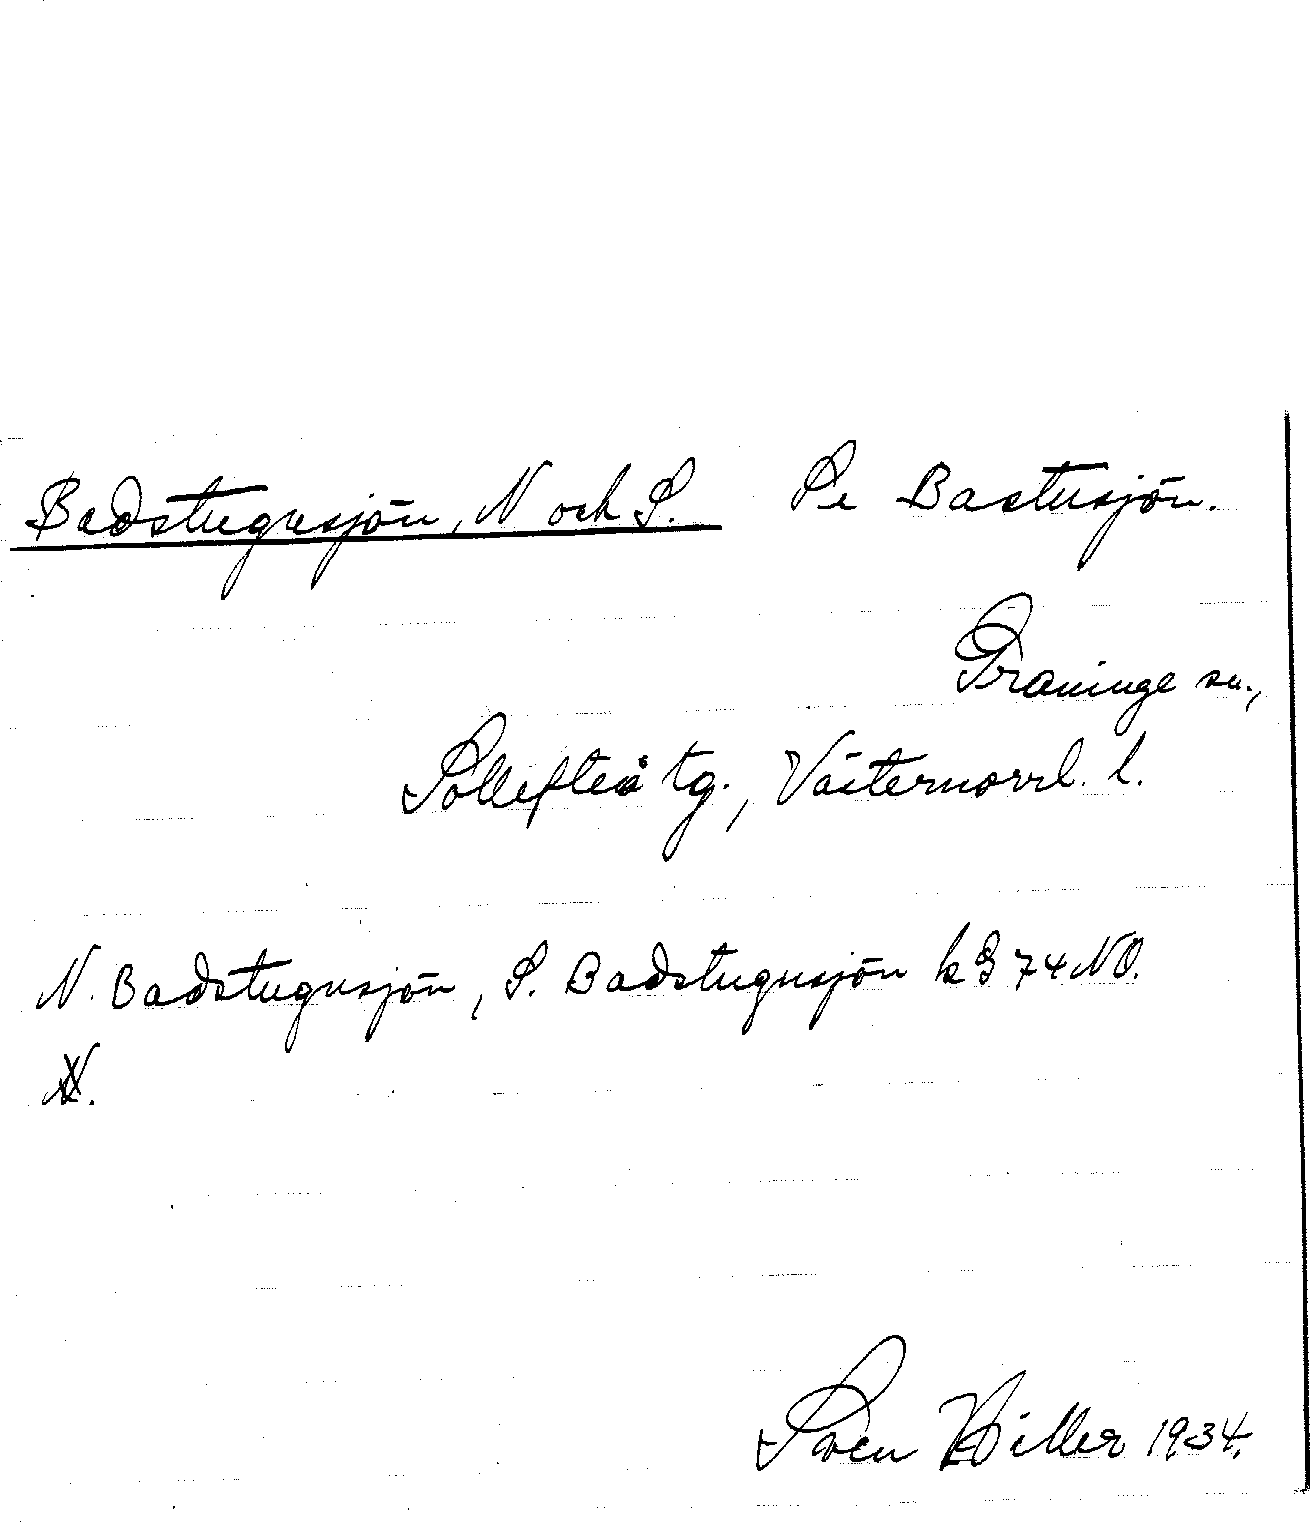 Badstugusjön, N och S. Se Bastusjön.
Graninge sn.,
Sollefteå tg., Västernorrl. l.
N. Badstugusjön, S. Badstugusjön k G 74 NO.
N.
Sven Hiller 1934.